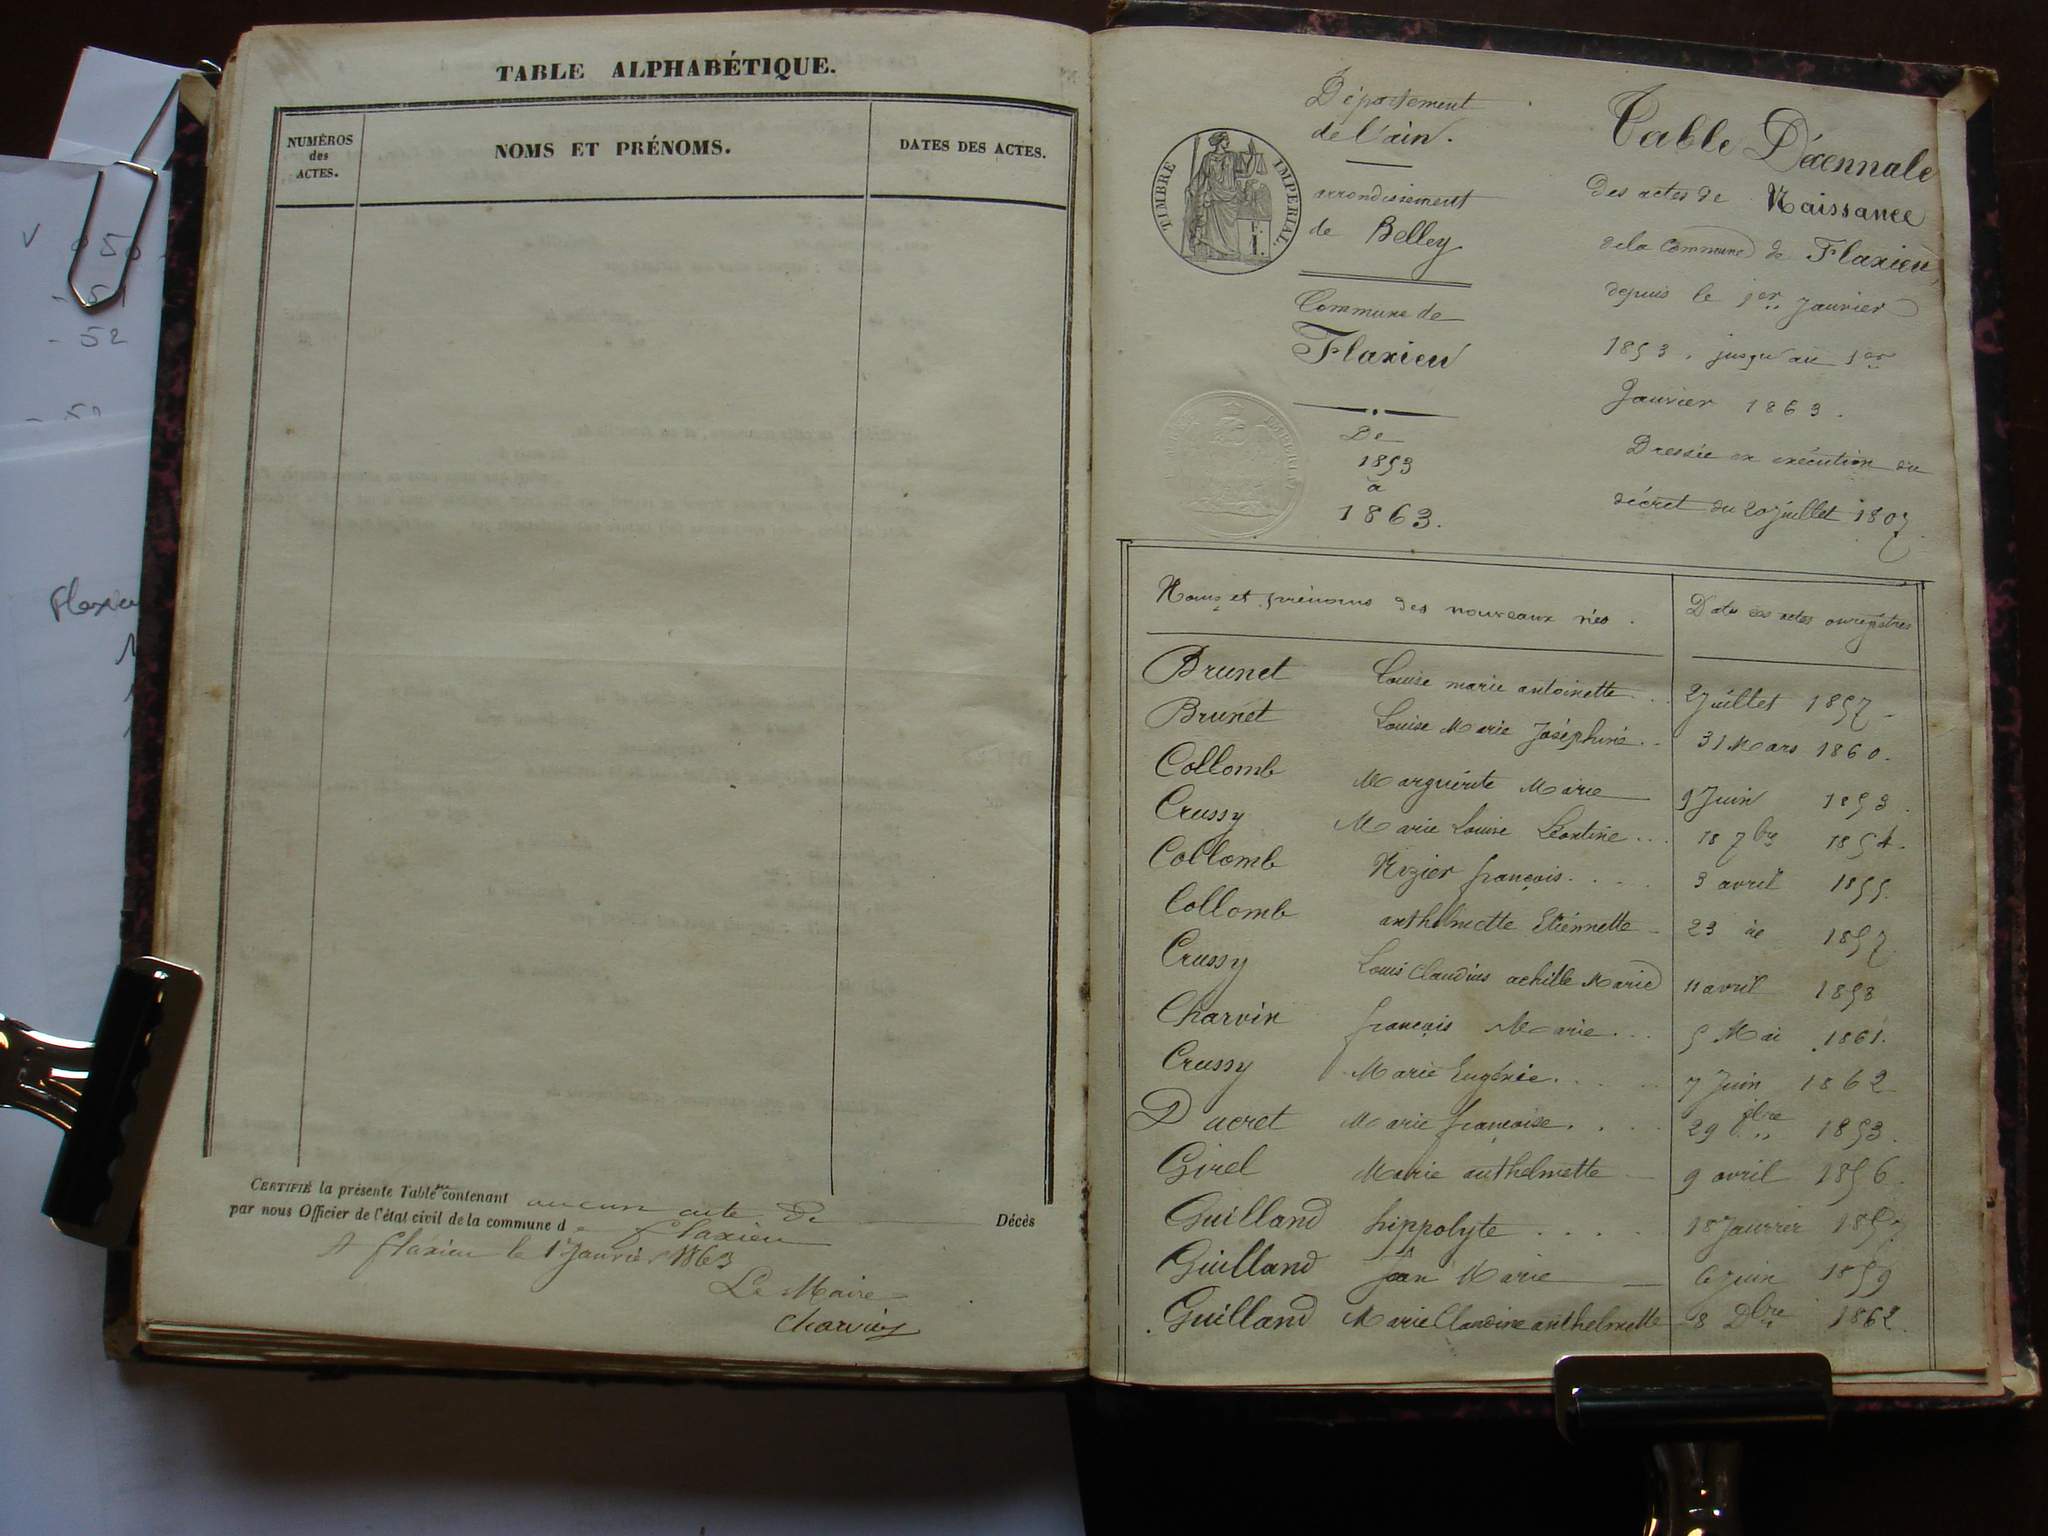 TABLE ALPHABÉTIQUE.
NUMÉROS
des
ACTES.
NOMS ET PRÉNOMS.
DATES DES ACTES.
CERTIFIÉ la présente Table contenant aucun acte de Décès
par nous Officier de l'état civil de la commune de flaxieu
A flaxieu le 1er Janvier 1863
Le Maire
Charvin
v 050
- 51
- 52
- 50
flaxieu
TIMBRE IMPÉRIAL.
Département
de l'ain.
arrondissement
de Belley
Commune de
Flaxieu
De
1853
a
1863.
Table Décennale
Des actes de Naissance
de la Commune de Flaxieu
depuis le 1er Janvier
1853. jusqu'au 1er
Janvier 1863.
Dressée en exécution du
décret du 20 juillet 1807.
Noms et prénoms des nouveaux nés. Date des actes
Brunet Louise marie antoinette .. 2 Juillet 1857 -
Brunet Louise Marie Joséphine .. 31 Mars 1860.
Collomb Marguérite Marie 9 Juin 1853.
Crussy Marie Louise Léontine ... 18 7bre 1854.
Collomb Nizier françois. . . . 3 avril 1855.
Collomb anthelmette Etiennette - 23 1857
Crussy Louis Claudius achille Marie 11 avril 1858
Charvin françois Marie ... 5 Mai 1861.
Crussy Marie Eugénie. . . . 7 Juin 1862
Ducret Marie françoise. . . . 29 9bre 1853.
Girel Marie anthelmette 9 avril 1856.
Guilland hippolyte . . . . 18 Janvier 1857.
Guilland Jean Marie 6 Juin 1859
Guilland Marie Claudine anthelmette 8 Dbre 1862.